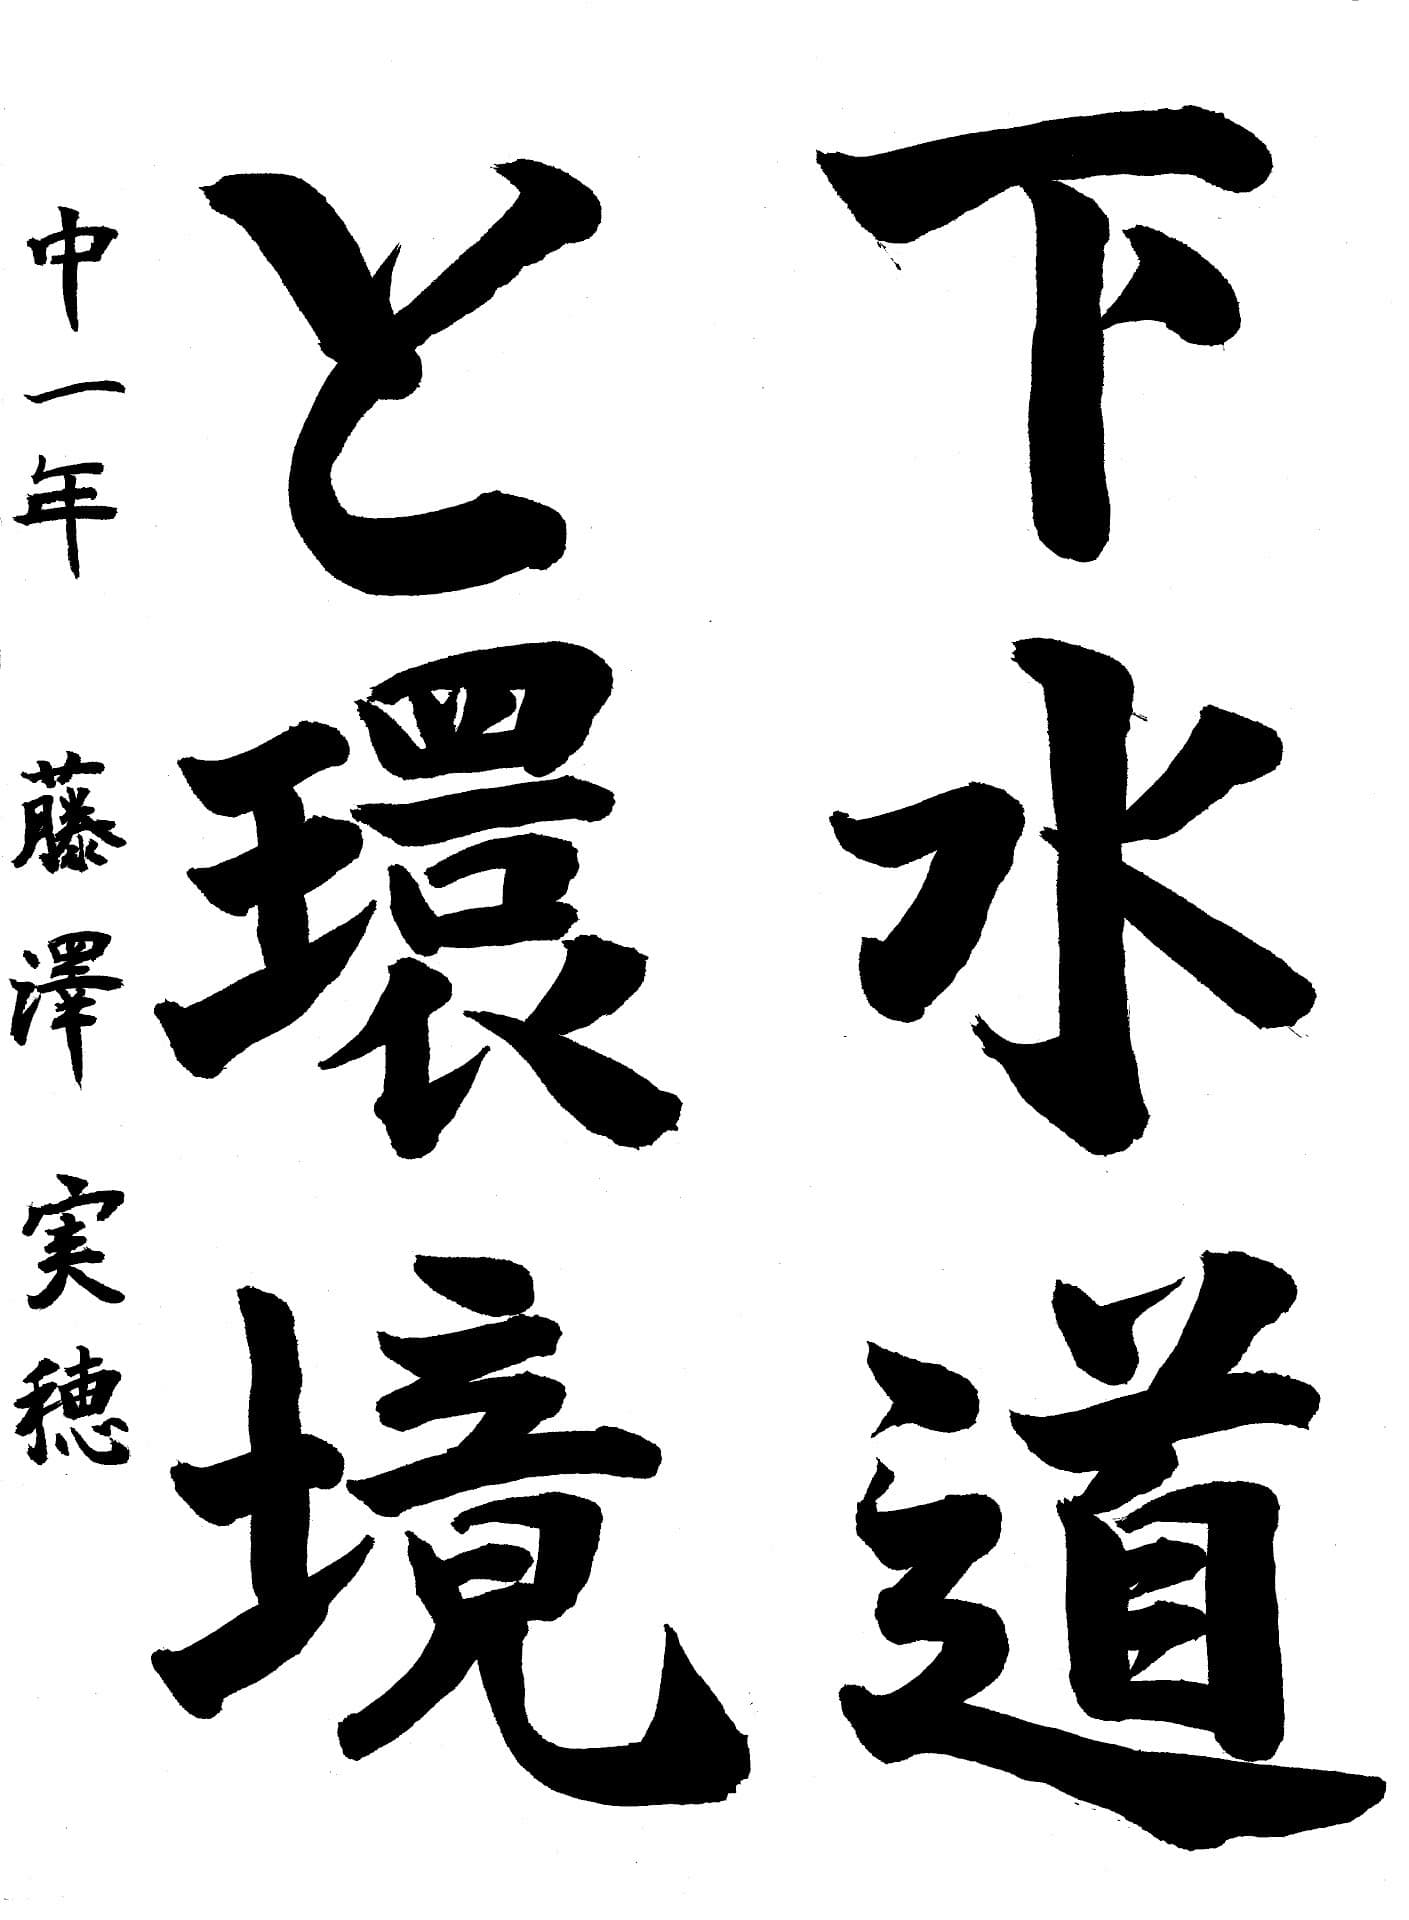 下水道
と環境
中一年 藤澤実穂